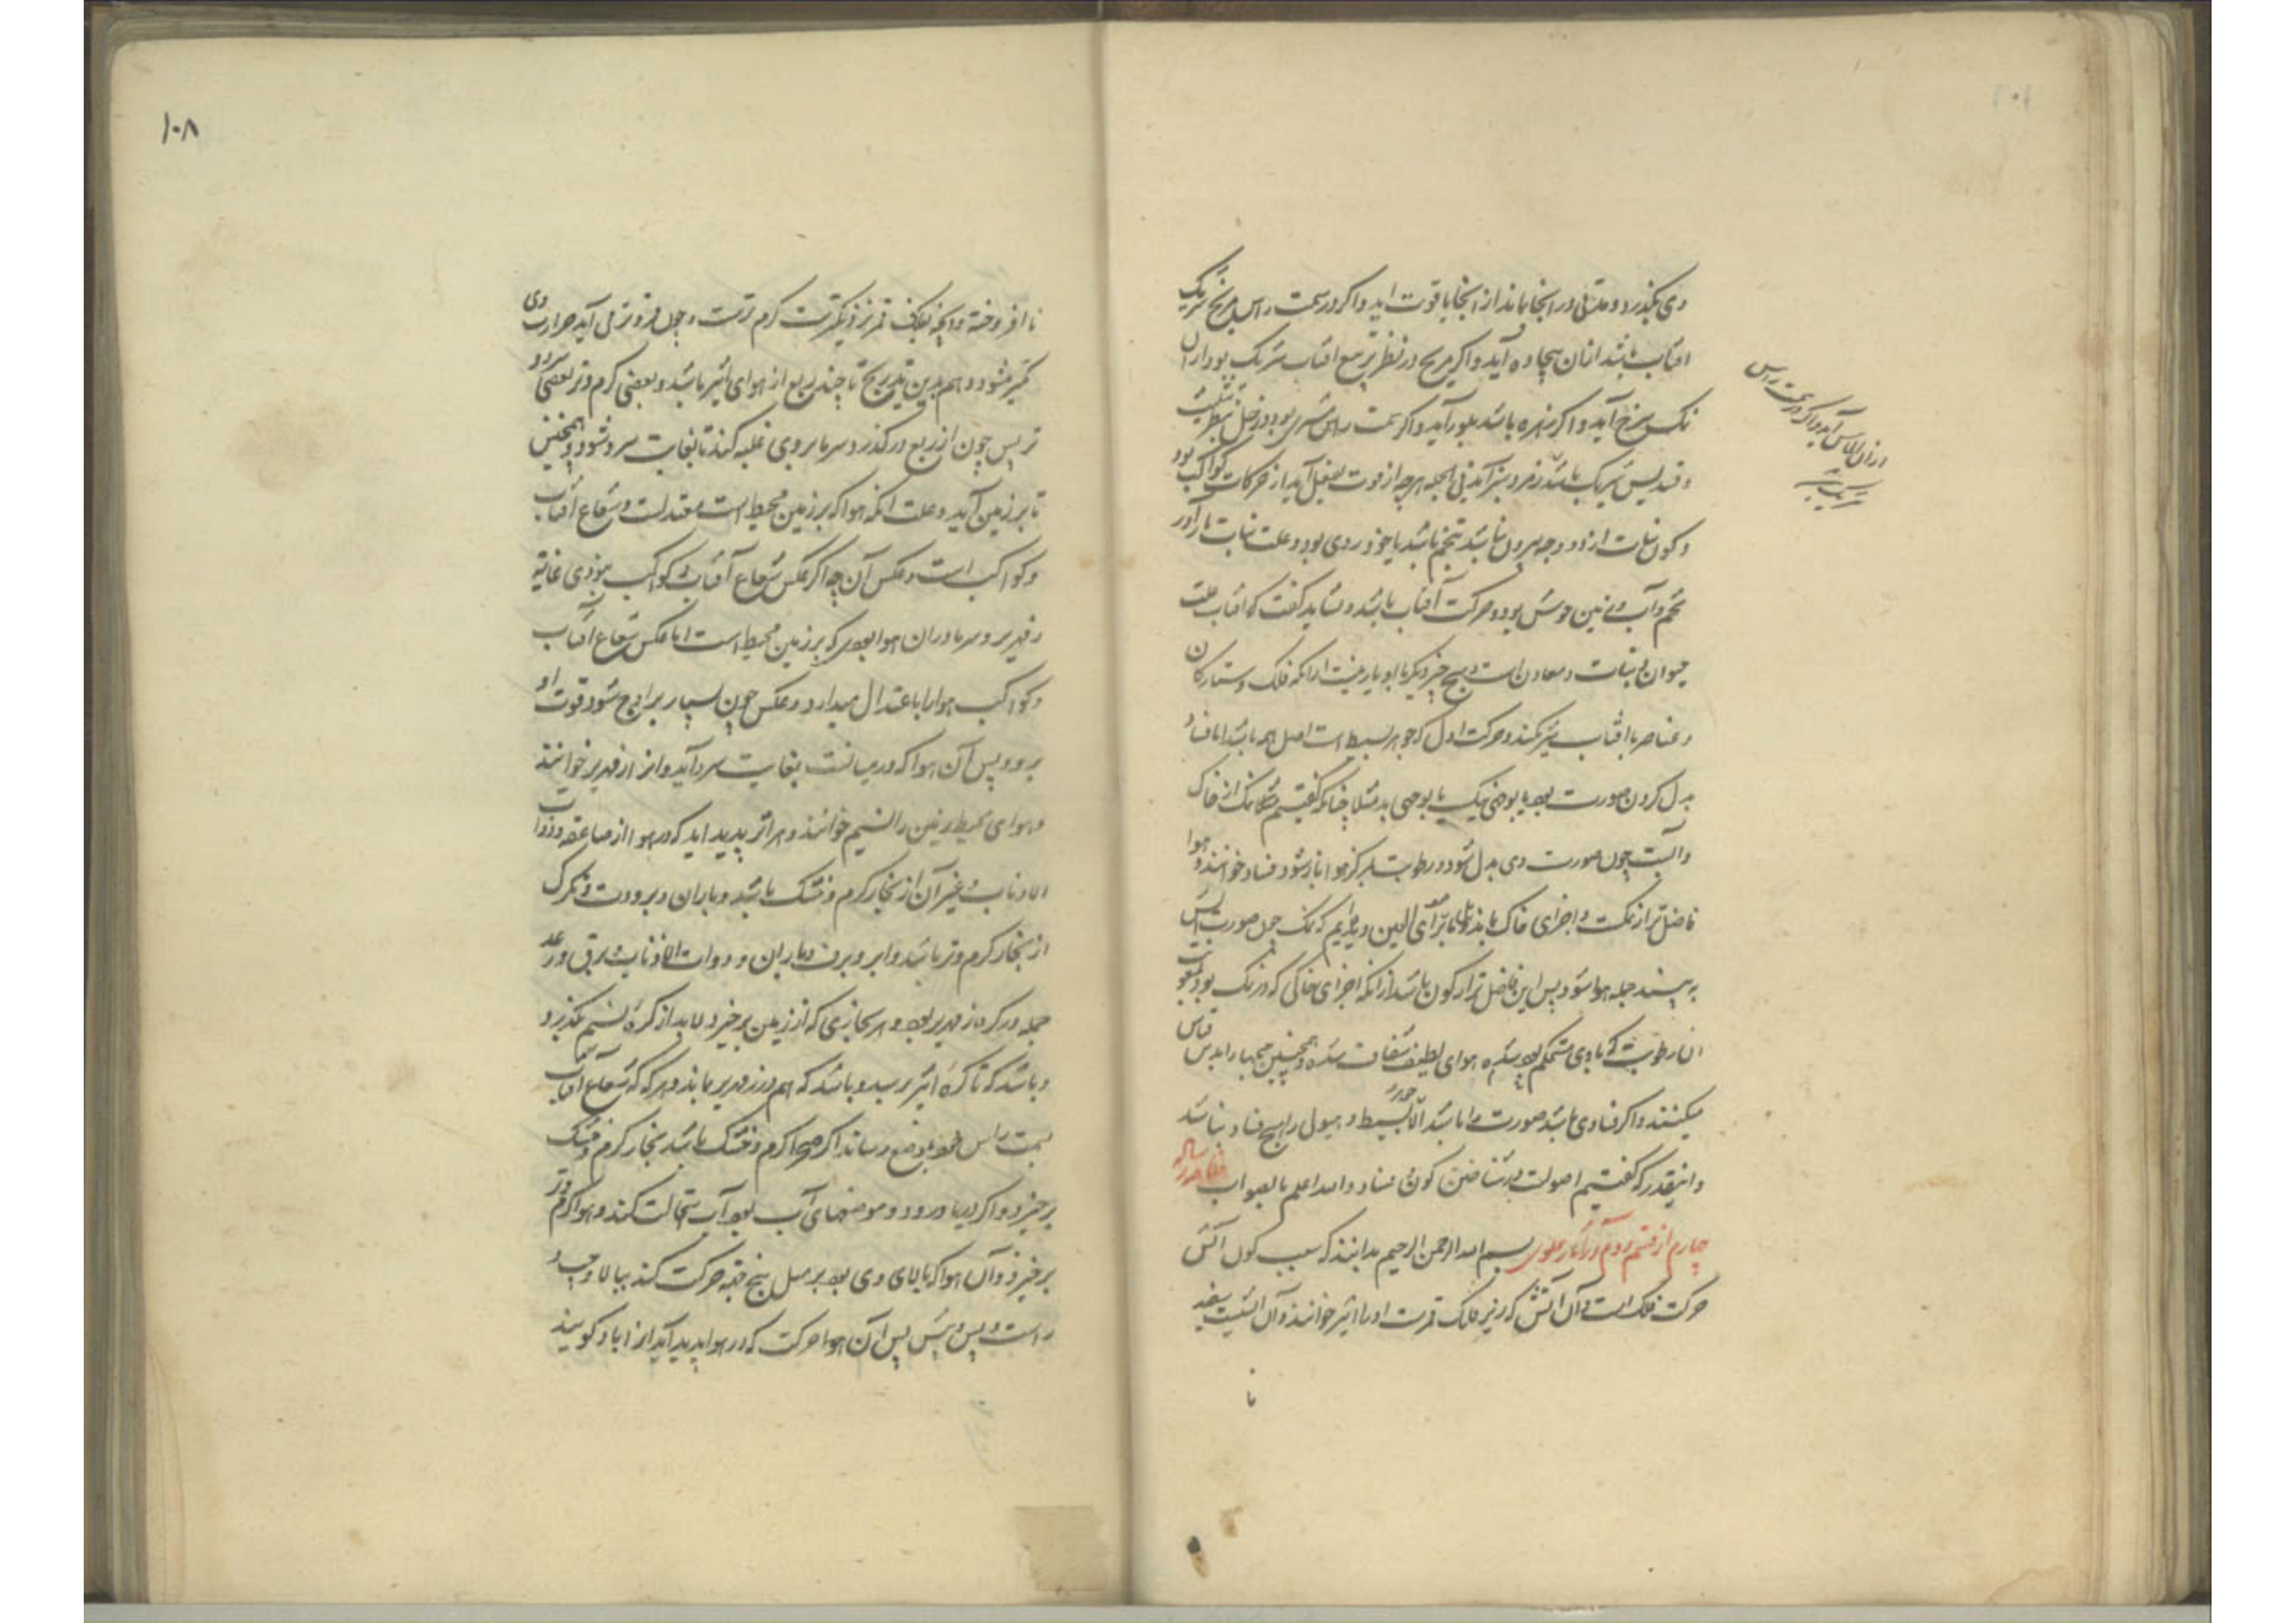 وی بگذرد و مدتی در انجا بماند از انجا یاقوت اید و اگر در سمت راس مریخ شریک
افتاب باشد ازان بیجاده آید و اگر مریخ در نظر تربیع افتاب شریک بود ازان
نمک سرخ آید و اگر زهره باشد بلور آید و اگر سمت راس مشتری بود و زحل بنظر تثلیث
و تسدیس شریک باشد زمرد سبز آید فی الجمله هرچه از قوت بفعل آید از حرکات کواکب بود
و کون نبات از دو وجه بیرون نباشد بتخم باشد یا خود روی بود و علت نبات بار آور
تخم و آب و زمین خوش بود و حرکت آفتاب باشد و نشاید گفت که افتاب علت
حیوان و نبات و معادن است و هیچ چیز دیگر با او یار نیست از انکه فلک و ستارگان
و عناصر با افتاب شریکند و حرکت اول که جوهر بسیط است اصل همه باشد اما فساد
بدل کردن صورت بود یا بوجهی نیک یا بوجهی بد مثلا چنانکه گفتیم مثلا نمک از خاک
و آبست چون صورت وی بدل شود و رطوبت بمرکز هوا باز شود فساد خوانند و هوا
فاضل تر از نمکست و اجزای خاک بماند برای العین و بینیم که نمک چون صورت آتش
به بیند جمله هوا شود پس این فاضل تر از کون باشد از انکه اجزای خاکی که در نمک بود بقوت
ان رطوبت که با وی مستحکم بود شده هوای لطیف شفاف شده و همچنین جیها را بدین قیاس
میکنند و اگر فسادی باشد صورت را باشد الا جوهر بسیط و هیول را هیچ فساد نباشد
و اینقدر که گفتیم اصولست در شناختن کون و فساد و الله اعلم بالصواب رساله
چهارم از قسم دوم در آثار علوی بسم الله الرحمن الرحیم بدانند که سبب کون اتش
حرکت فلک است و آن اتش که زیر فلک قمرست اورا اثیر خوانند و آن اتشیست سفید
نا
ازان الماس آید و اگر در سمت راس
شریک
۱۰۸
نا افروخته و انچه بفلک قمر نزدیکترست گرم ترست و چون فروتر می آید حرارت وی
کمتر میشود و هم بدین تدریج تا چند ربع از هوای اثیر باشد و بعضی گرم و تر بعضی سرد و
تر پس چون از ربع در گذرد سرما بروی غلبه کند تا بغایت سرد شود و همچنین
تا بر زمین آید و علت انکه هوا که بر زمین محیط است معتدلست و شعاع آفتاب
و کواکب است و عکس آن چه اگر عکس شعاع آفتاب و کواکب نبودی غایة
زمهریر و سرما دران هوا بودی که بر زمین محیط است اما عکس شعاع آفتاب
و کواکب هوا را باعتدال میدارد و عکس چون بسیار بر اوج شود قوت او
برود پس آن هوا که در میانست بغایت سرد آید و انرا زمهریر خوانند
و هوای محیط زمین را نسیم خوانند و هر اثر پدید اید که در هوا از صاعقه و ذوات
الاذناب و غیر آن از بخار گرم و خشک باشد و باران و برودت و تگرگ
از بخار گرم و تر باشد و ابر و برف و باران و ذوات الاذناب و برق و رعد
جمله در کره زمهریر بود و هر بخاری که از زمین برخیزد لابد از کرۀ نسیم بگذرد
و باشد که تا کرۀ اثیر برسد و باشد که هم در زمهریر بماند و هرگه که شعاع آفتاب
بسمت راس خود بموضع رساند اگر صحرا گرم و خشک باشد بخار گرم و خشک
برخیزد و اگر دریا و رود و موضعهای آب بود آب استحالت کند و هوا گرم و تر
برخیزد و آن هوا که بالای وی بود بر مثل پنج حرکت کند ببالا و چپ و
راست و پس و پیش پس آن هوا حرکت که در هوا پدید آید انرا باد گویند